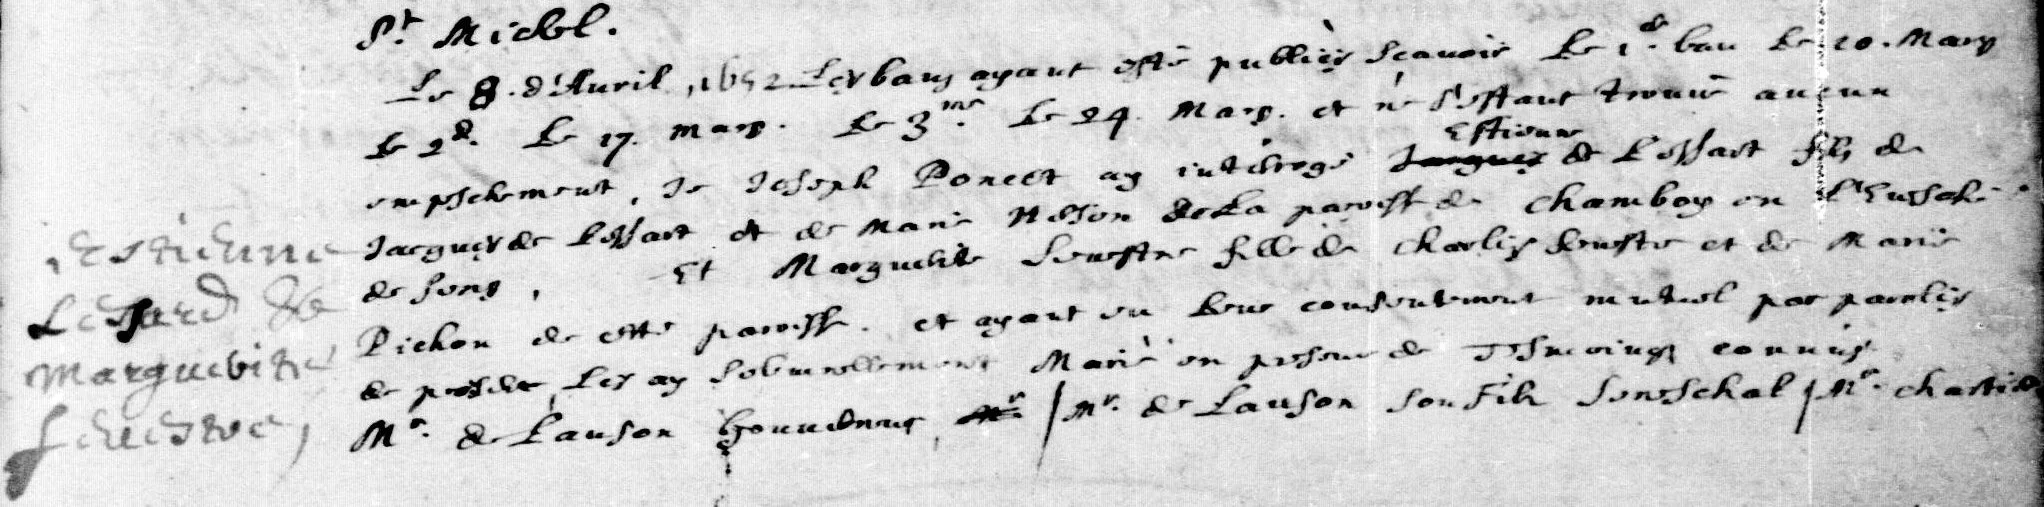 St. Michel.
Le 8. d'Avril, 1652 Les bans ayant esté publiés scavoir Le 1er. ban Le 10. Mars
Le 2d. Le 17. Mars. Le 3me. Le 24. Mars. et ne s'estant trouvé aucun
Estienne
empeschement, Je Joseph Poncet ay interrogé Jacques de Lessart fils de
Jacques de Lessart et de Marie de La paroisse de Chamboy en l'Evesché
de Sens, Et Marguerite Sevestre fille de Charles Sevestre et de Marie
Pichon de cette paroisse. et ayant eu Leur consentement mutuel par paroles
de present, Les ay solemnellement Marié en presence de Tesmoings connûs
Mr. de Lauson Gouverneur, Mr / Mr. de Lauson son Fils Seneschal / Mr.
Estienne
Lessard &
Marguerite
Sevestre,